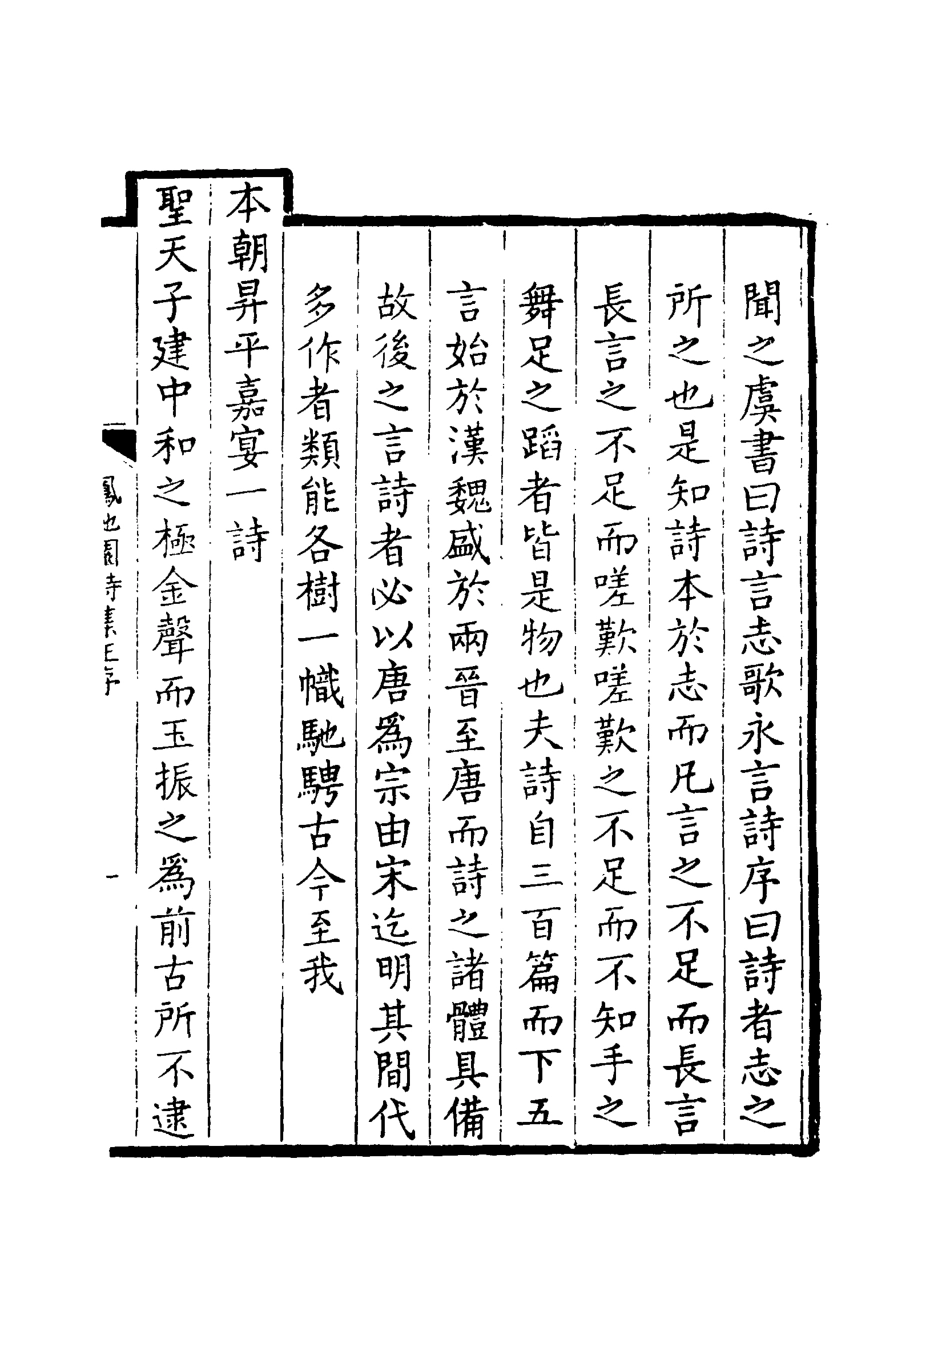 聞之虞書曰詩言志歌永言詩序曰詩者志之
所之也是知詩本於志而凡言之不足而長言
長言之不足而嗟歎嗟歎之不足而不知手之
舞足之蹈者皆是物也夫詩自三百篇而下五
言始於漢魏盛於兩晉至唐而詩之諸體具備
故後之言詩者必以唐爲宗由宋迄明其間代
多作者類能各樹一幟馳騁古今至我
本朝昇平嘉宴一詩
聖天子建中和之極金聲而玉振之爲前古所不逮
鳳池園詩集王序
一